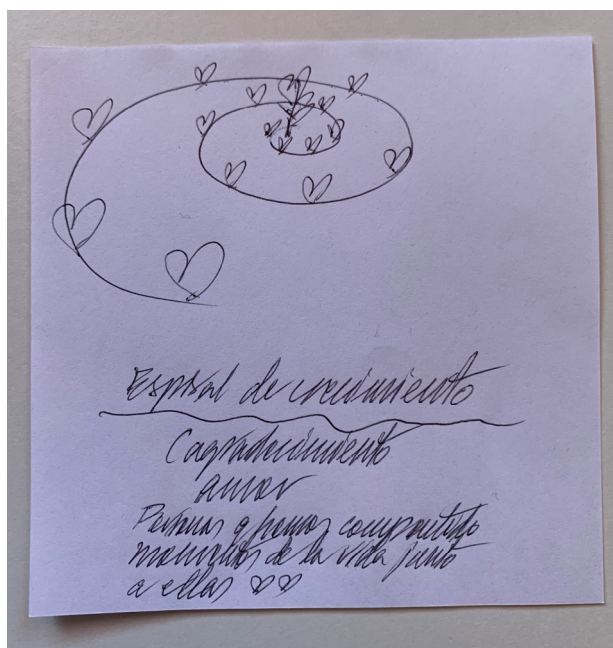 Espiral de crecimiento
Cagradecimiento
amor
Personas q hemos compartido
momentos de la vida junto
a ellas ♡♡